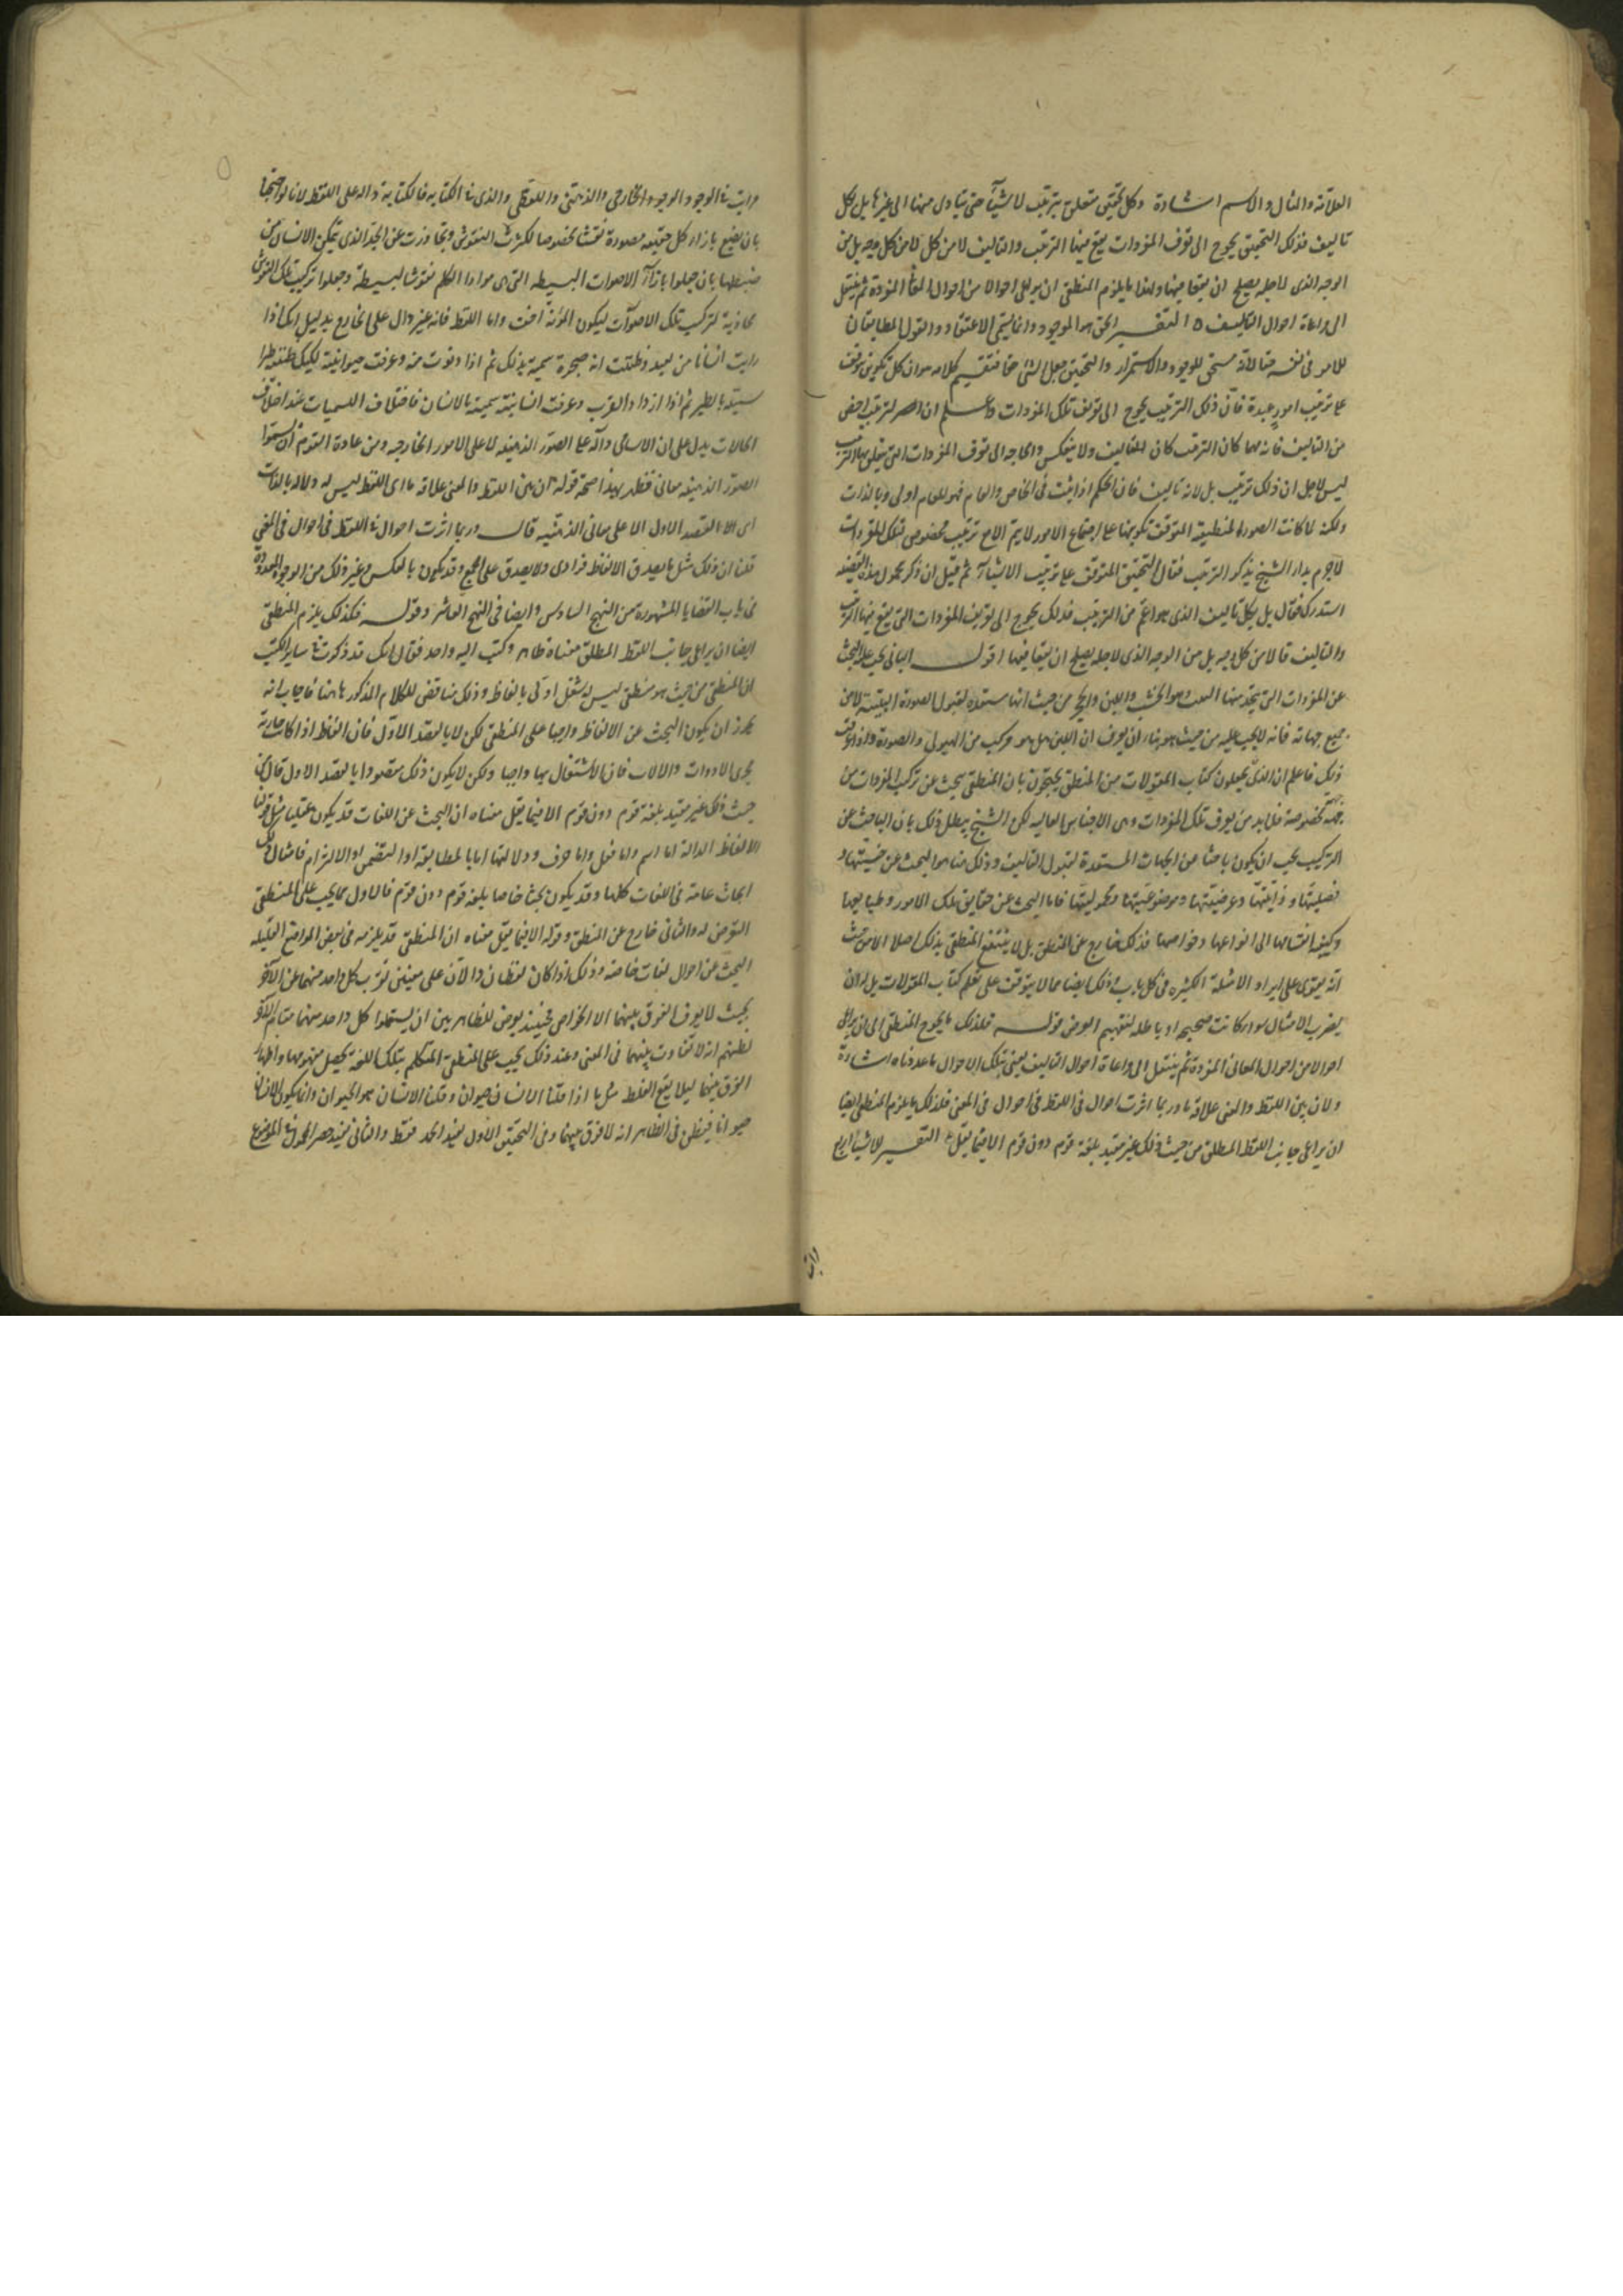 العلاقة والمثال والاسم اشارة وكل تحقيق متعلق بترتيب الاشياء حتى يتادى منها الى غيرها بل بكل
تاليف فذلك التحقيق يحوج الى تعرف المفردات يقع فيها الترتيب والتاليف لا من كل وجه بل من
الوجه الذى لاجله يصلح ان يقعا فيها ولهذا ما يلزم المنطقى ان يراعى احوالا من احوال المعانى المفردة ثم ينتقل
الى مراعاة احوال التاليف التفسير الحق هو الموجود وانما يسمى الاعتقاد والقول المطابقان
للامر فى نفسه حقا لانه مستحق للوجود والاستمرار والتحقيق جعل الشئ حقا فتفسير كلامه هو ان كل تكوين توقف
على ترتيب امور عديدة فان ذلك الترتيب يحوج الى تعرف تلك المفردات واعلم ان الترتيب اخص
من التاليف فانه مهما كان الترتيب كان التاليف ولا ينعكس والحاجه الى تعرف المفردات التى يتعلق بها الترتيب
ليس لاجل ان ذلك ترتيب بل لانه تاليف فان الحكم اذا يثبت فى الخاص والعام فهو للعام اولى وبالذات
ولكنه لما كانت الصورة المنطقية المتوقف تكوينها على اجتماع الامور لا يتم الا مع ترتيب مخصوص لتلك المفردات
لاجرم بدا الشيخ بذكر الترتيب فقال التحقيق المتوقف على ترتيب الاشياء ثم قبل ان ذكر محمول هذه القضية
استدرك فقال بل بكل تاليف الذى هو اعم من الترتيب فذلك يحوج الى تعريف المفردات التى يقع فيها الترتيب
والتاليف قالا من كل وجه بل من الوجه الذى لاجله يصلح ان يقعا فيها اقول البانى يجب عليه البحث
عن المفردات التى يتخذ منها البيت وهو الخشب واللبن والحجر من حيث انها مستعدة لقبول الصورة البيتية لا من
جميع جهاته فانه لا يجب عليه من حيث هو بناء ان يعرف ان اللبن هل هو مركب من الهيولى والصورة واذا عرفت
ذلك فاعلم ان الذين يجعلون كتاب المقولات من المنطق يحتجون بان المنطقى يبحث عن تركيب المفردات من
جهة مخصوصة فلابد من تعرف تلك المفردات وهى الاجناس العاليه لكن الشيخ يبطل ذلك بان الباحث عن
التركيب يجب ان يكون باحثا عن الجهات المستعدة لقبول التاليف وذلك هاهنا هو البحث عن جنسيتها و
فصليتها وذاتيتها وعرضيتها وموضوعيتها ومحموليتها فاما البحث عن حقايق تلك الامور وطبايعها
وكيفيه انقسامها الى انواعها وخواصها فذلك خارج عن المنطق بل لا ينتفع المنطقى بذلك اصلا الا من حيث
انه يقوى على ايراد الامثلة الكثيره فى كل باب وذلك ايضا مما لا يتوقف على تعلم كتاب المقولات بل له ان
يضرب الامثال سواء كانت صحيحه او باطله لتفهيم الغرض قوله فلذلك ما يحوج المنطقى الى ان يراعى
احوالا من احوال المعانى المفردة ثم ينتقل الى مراعاة احوال التاليف يعنى بتلك الاحوال ما عددناه اشارة
ولان بين اللفظ والمعنى علاقة ما وربما اثرت احوال فى اللفظ فى احوال فى المعنى فلذلك ما يلزم المنطقى ايضا
ان يراعى جانب اللفظ المطلق من حيث ذلك غير مقيد بلغة قوم دون قوم الا فيما يقل التفسير للاشيا اربع
مراتب الوجود الوجود الخارجى والذهنى واللفظى والذى فى الكتابه فالكتابة داله على اللفظ لانا لو احتجنا
بان نضع بازاء كل حقيقه مصورة نقشا مخصوصا لكثرت النقوش وتجاوزت عن الحد الذى يمكن الانسان من
ضبطها بان جعلوا بازاء الاصوات البسيطه التى هى مواد الكلم نقوشا بسيطة وجعلوا تركيب تلك النقوش
محاذية لتركيب تلك الاصوات ليكون المؤنة اخف واما اللفظ فانه غير دال على الخارج بدليل انك اذا
رايت انسانا من بعيد وظننت انه صخرة سميته بذلك ثم اذا دنوت منه وعرفت حيوانيته لكنك ظننته طيرا
سميته بالطير ثم اذا ازداد القرب وعرفت انسانيته سميته بالانسان فاختلاف التسميات عند اختلاف
الحالات يدل على ان الاسامى دالة على الصور الذهنيه لا على الامور الخارجيه ومن عادة القوم ان يسموا
الصور الذهنيه معانى فظهر بهذا صحة قوله ان بين اللفظ والمعنى علاقه ما اى اللفظ ليس له دلاله بالذات
اى لا بالقصد الاول الا على معانى الذهنيه قال وربما اثرت احوال فى اللفظ فى احوال فى المعنى
قلنا ان ذلك مثل ما يصدق الالفاظ فرادى ولا يصدق على الجمع وقد يكون بالعكس وغير ذلك من الوجوه المعدودة
فى باب القضايا المشهورة من النهج السادس وايضا فى النهج العاشر وقوله فكذلك يلزم المنطقى
ايضا ان يراعى جانب اللفظ المطلق معناه ظاهر وكتب اليه واحد فقال انك قد ذكرت فى ساير الكتب
ان المنطقى من حيث هو منطقى ليس له شغل اولى بالفاظ وذلك يناقض للكلام المذكور هاهنا فاجاب انه
يجوز ان يكون البحث عن الالفاظ واجبا على المنطقى لكن لا بالقصد الاول فان الفاظ اذا كانت جارية
مجرى الادوات والالات فان الاشتغال بها واجبا ولكن لا يكون ذلك مقصودا بالقصد الاول قال من
حيث ذلك غير مقيد بلغة قوم دون قوم الا فيما يقل معناه ان البحث عن اللغات قد يكون عقليا مثل قولنا
الالفاظ الدالة اما اسم واما فعل واما حرف ودلالتها اما بالمطابقة او التضمن او الالتزام فامثال ذلك
ابحاث عامة فى اللغات كلها وقد يكون بحثا خاصا بلغة قوم دون قوم فالاول مما يجب على المنطقى
التعرض له والثانى خارج عن المنطق وقوله الا فيما يقل معناه ان المنطقى قد يلزمه فى بعض المواضع القليله
البحث عن احوال لغات خاصة وذلك اذا كان لفظان دالان على معنيين يقرب كل واحد منهما عن الاخر
بحيث لا يعرف الفرق بينهما الا الخواص فحينئذ يعرض للظاهريين ان يستعملوا كل واحد منهما مقام الاخر
لظنهم انه لا تفاوت بينهما فى المعنى وعند ذلك يجب على المنطقى المتكلم بتلك اللغة تحصيل مفهومها واظهار
الفرق بينهما ليلا يقع الغلط مثل ما اذا قلنا الانسان حيوان وقلنا الانسان هو الحيوان وانما يكون الانسان
حيوانا فيظن فى الظاهر انه لا فرق بينهما وفى التحقيق الاول يفيد الحمل فقط والثانى يفيد حصر المحمول فى الموضوع